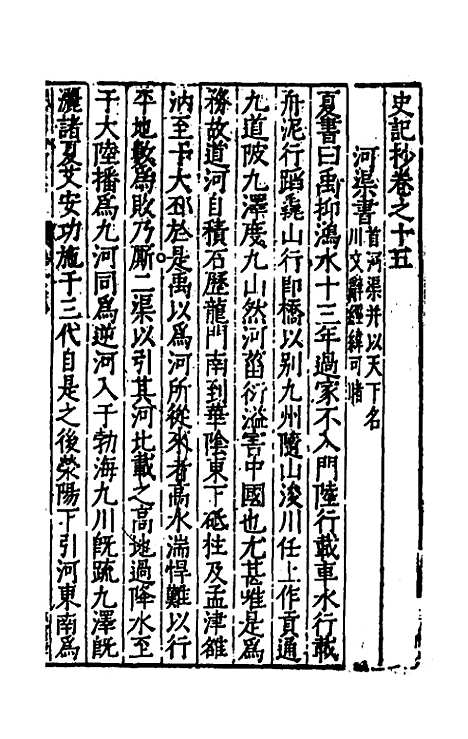 史記抄卷之十五
河渠書首河渠并以天下名
川文辭經緯可睹
夏書曰禹抑鴻水十三年過家不入門陸行載車水行載
舟泥行蹈毳山行即橋以別九州隨山浚川任土作貢通
九道陂九澤度九山然河菑衍溢害中國也尤甚唯是爲
務故道河自積石歷龍門南到華陰東下砥柱及孟津雒
汭至于大邳於是禹以爲河所從來者高水湍悍難以行
平地數爲敗乃厮二渠以引其河北載之高地過降水至
于大陸播爲九河同爲逆河入于勃海九川旣疏九澤旣
灑諸夏艾安功施于三代自是之後滎陽下引河東南爲